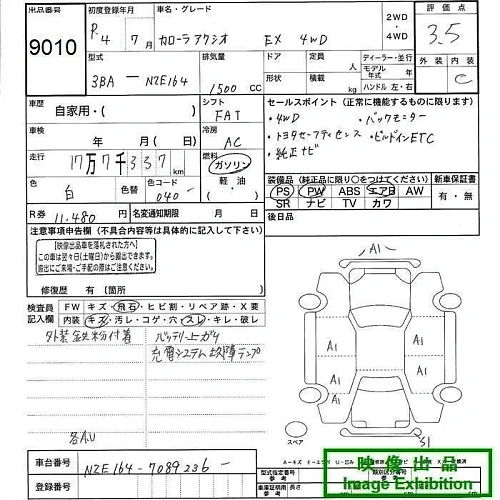 出品番号 初度登録年月 車名・グレード 評価点
9010 R 4 年 7 月 カローラアクシオ EX 4WD 2WD ・ 4WD 3.5
型式 排気量 ドア 定員 ディーラー・並行 外装 内装
3BA - NZE164 1500 CC 形状 積載 kg モデル年式 年 ハンドル 左・右 C
車歴 自家用・( ) シフト FAT セールスポイント (正常に機能するものに限ります)
車検 年 月( 日) 冷房 AC ・4WD ・バックモニター
・トヨタセーフティセンス ・ビルドインETC
走行 17万7千337 km 燃料 ガソリン 軽油 ・純正ナビ
色 白 色替 色 040- ( ) 装備品 (純正品に限り○をつけてください) 新車保証書
PS PW ABS エアB AW 有・無
R券 11,480 円 名変通知期限 月 日 SR ナビ TV カワ
注意事項申告欄 (不具合内容等は具体的に記入して下さい) 後日品
【映像出品車を落札された方へ】
この車は翌々日(土曜日)から搬出できます。
搬出にご来場・ご手配の際はご注意ください。
修復歴 有 (箇所 )
検査員 FW キズ・飛石・ヒビ割・リペア跡・X要
記入欄 内装 キズ・汚レ・コゲ・穴・スレ・キレ・破レ
外装鉄粉付着 バッテリー上がり
充電システム故障ランプ
各A.U
A1
A1
A1
A1
A1
S1
スペア
車台番号 NZE164-7089236-
登録番号
型式指定番号 参考 類別区分番号 参考
車庫証明用長さ 参考 cm
映像出品
Image Exhibition